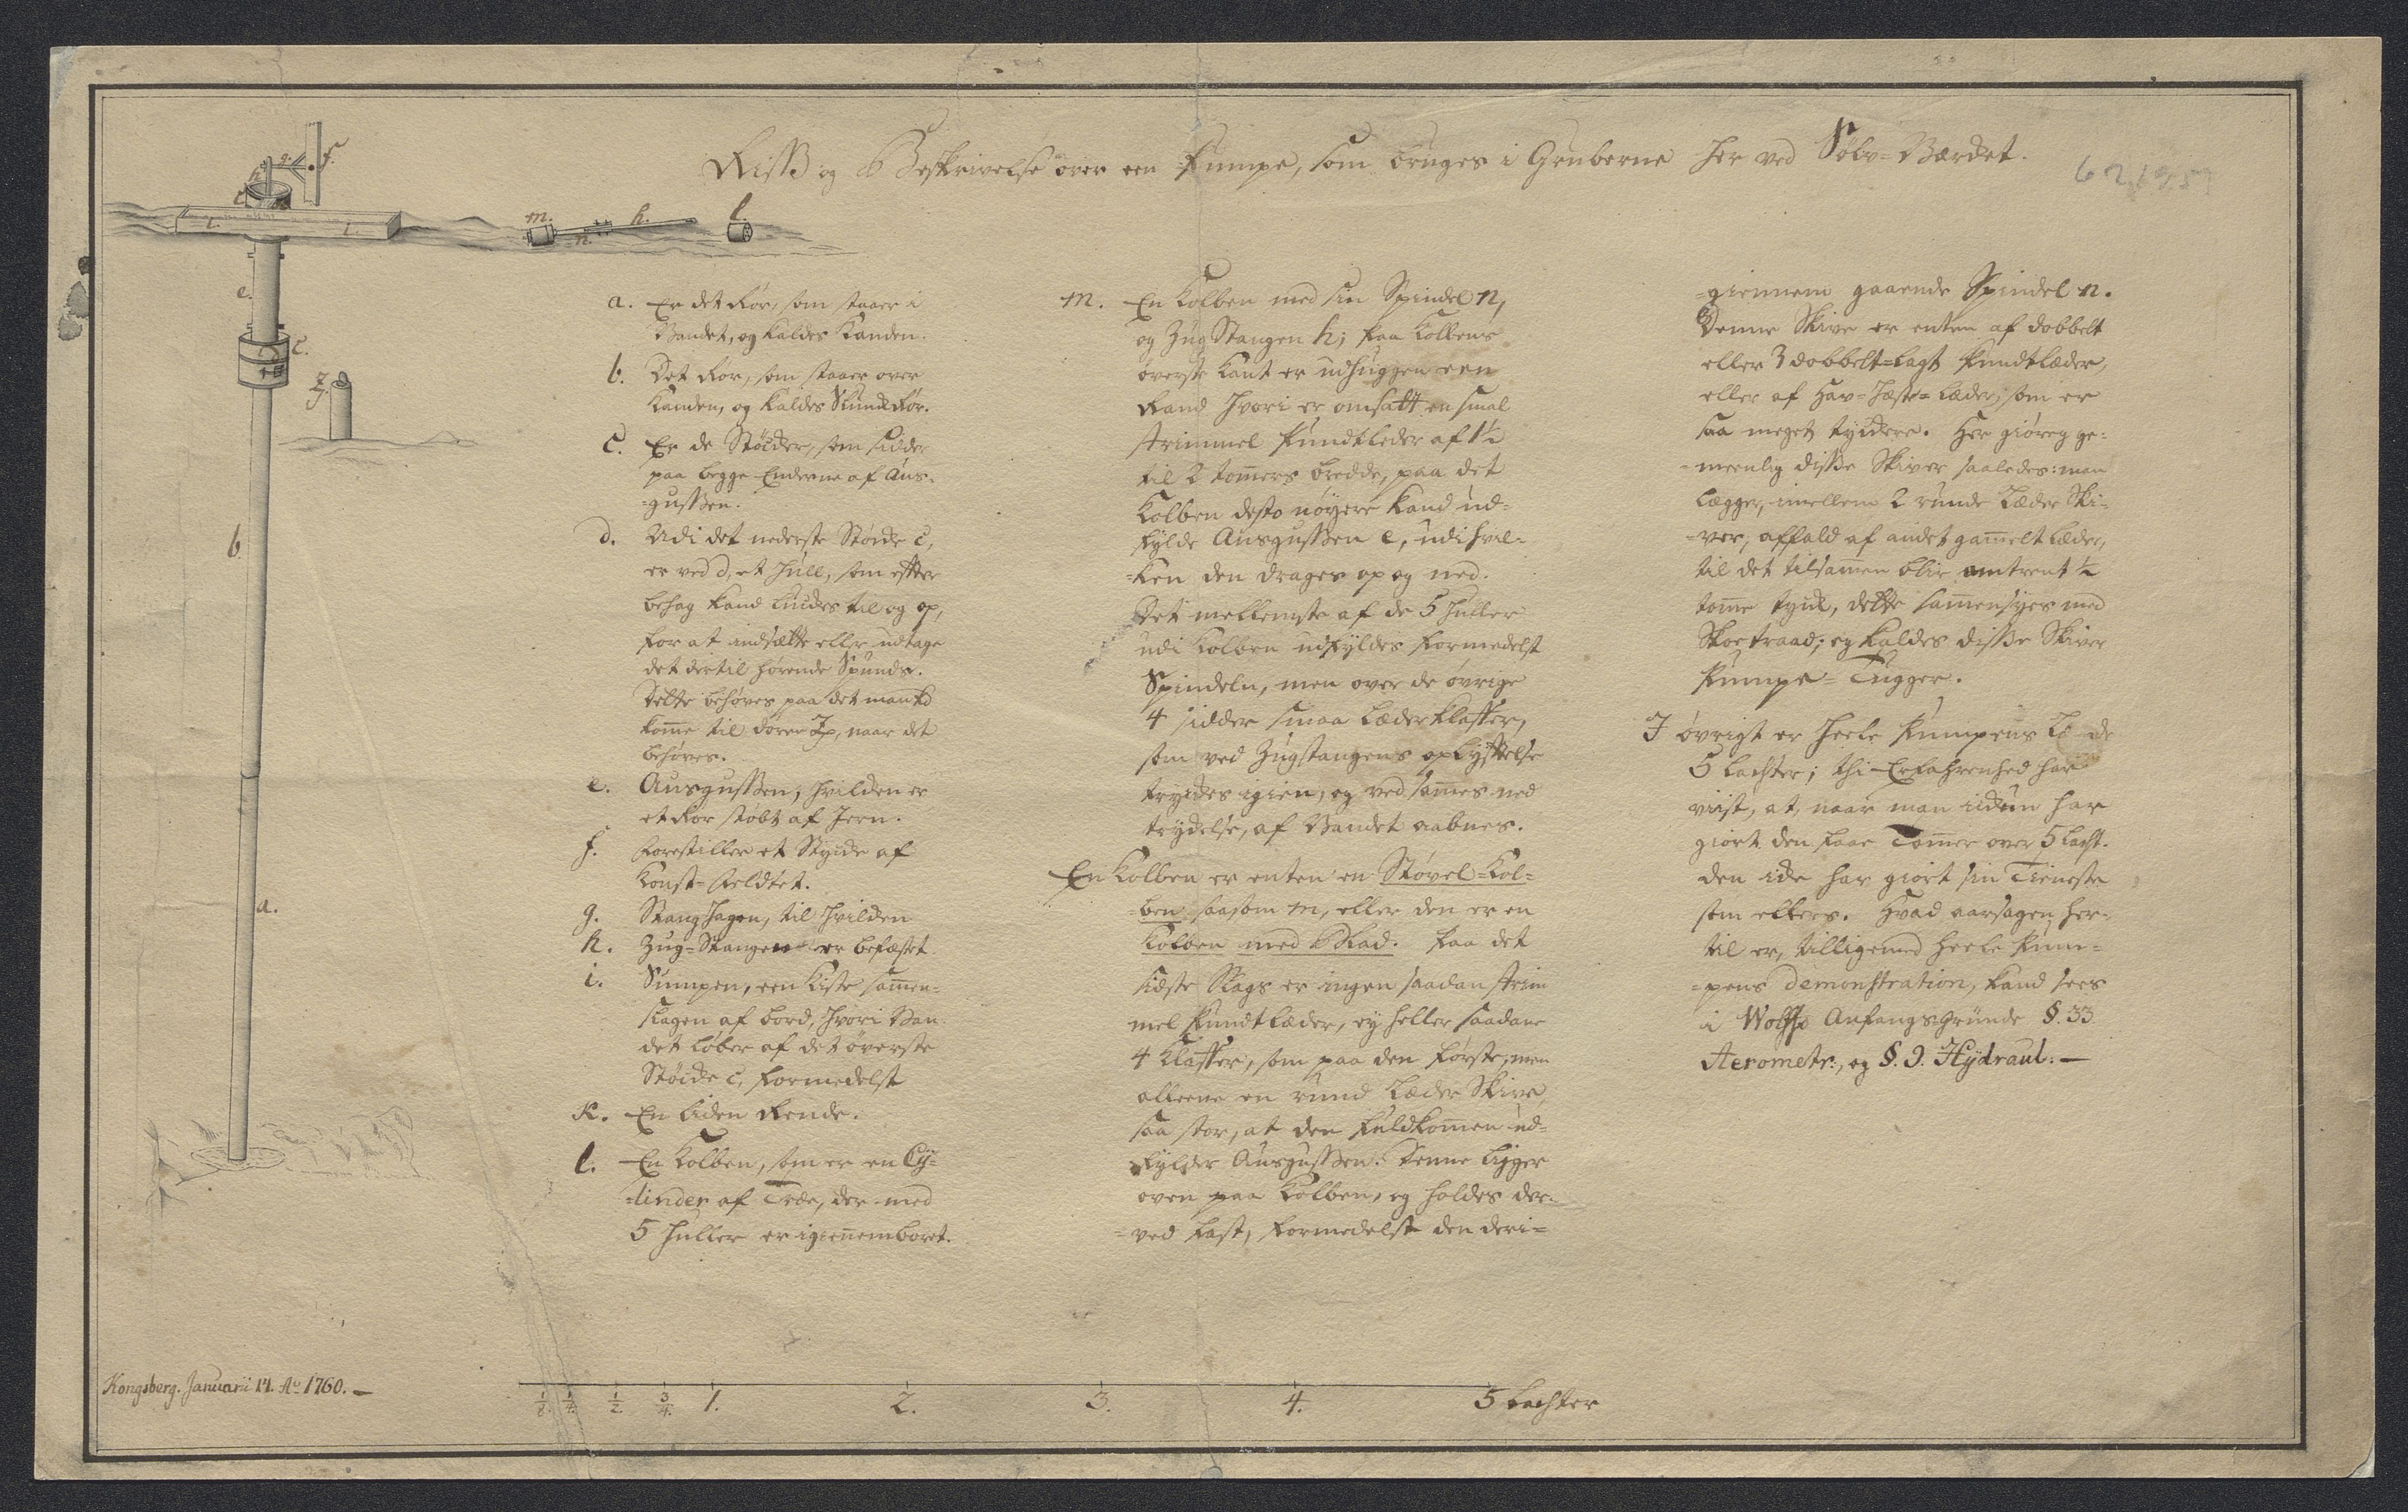 Riss og Beskrivelse over een Pumpe, som bruges i Gruberne her ved Sølv-Værcket.
f.
g.
h.
c.
i.
i.
m.
n.
h.
l.
e.
c.
d
Z.
b.
a.
a. Er det Rør, som staaer i
Vandet, og kaldes Kanden.
b. Det Rør, som staaer over
Kanden, og kaldes StundRør.
c. Er de Støcker, som sidder
paa begge Enderne af Aus-
=gussen.
d. Udi det nederste Støcke c,
er ved d, et Hull, som efter
behag kand luckes til og op,
for at indsætte eller udtage
det dertil hørende Spunds.
Dette behøves paa det mand
kom̄e til døren Z, naar det
behøves.
e. Ausgussen, hvilcken er
et Rør støbt af Jern.
f. Forestiller et Stycke af
Konst-Feldtet.
g. Stang Hagen, til hvilcken
h. Zug-Stangen er befæstet.
i. Sumpen, een Kiste sam̄en-
slagen af bord, hvori Van-
det løber af det øverste
Støcke c, formedelst
K. En liden Rende.
l. En Kolben, som er en Cy-
=linder af Træe, der med
5 Huller er igien̄emboret.
m. En Kolben med sin Spindel n,
og Zug Stangen h; paa Kolbens
øverste Kant er udhuggen een
Rand hvori er omsatt en smal
strimmel Pundtleder af 1½
til 2 tom̄ers bredde, paa det
Kolben desto nøyere kand ud-
fylde Ausgussen e, udi hvil-
=ken den drages op og ned.
Det mellemste af de 5 Huller
udi Kolben udfyldes formedelst
Spindeln, men over de øvrige
4 sidder smaa Læderklaffer,
som ved Zugstangens oplyftelse
tryckes igien, og ved sam̄es ned
tryckelse, af Vandet aabnes.
En Kolben er enten en Støvel-Kol-
=ben saasom m, eller den er en
Kolben med Blad. Paa det
sidste Slags er ingen saadan strim
mel Pundtlæder, ey heller saadane
4 Klaffer, som paa den første, men
alleene en rund Læder Skive,
saa stor, at den fuldkom̄en ud-
fylder Ausgussen. Denne ligger
oven paa Kolben, og holdes der-
=ved fast, formedelst den deri-
=giennem gaaende Spindel n.
Denne Skive er enten af dobbelt
eller 3 dobbelt-lagt Pundtlæder,
eller af Hav-Hæste-Læder, som er
saa meget tyckere. Her giøres ge-
=meenlig disse Skiver saaledes: man
lægger, imellem 2 runde Læder Ski-
=ver, affald af andet gam̄elt Læder,
til det tilsam̄en blir omtrent ½
tom̄e tyck, dette sam̄ensyes med
Skoetraad; og kaldes disse Skiver
Pumpe-Tugger.
I øvrigt er heele Pumpens Læ de
5 Lachter; thi Erfahrenhed har
viist, at, naar man ickun har
giort den faae Tom̄er over 5 Lacht.
den icke har giort sin Tieneste
som ellers. Hvad aarsagen her-
til er, tilligemed heele Pum-
=pens demonstration, kand sees
i Wolffs Anfangsgründe §. 33
Aerometr:, og §. 9. Hydraul: —
Kongsberg. Januarii 14. Ao 1760. —
1/8. 1/4. 1/2. 3/4. 1. 2. 3. 4. 5 Lachter